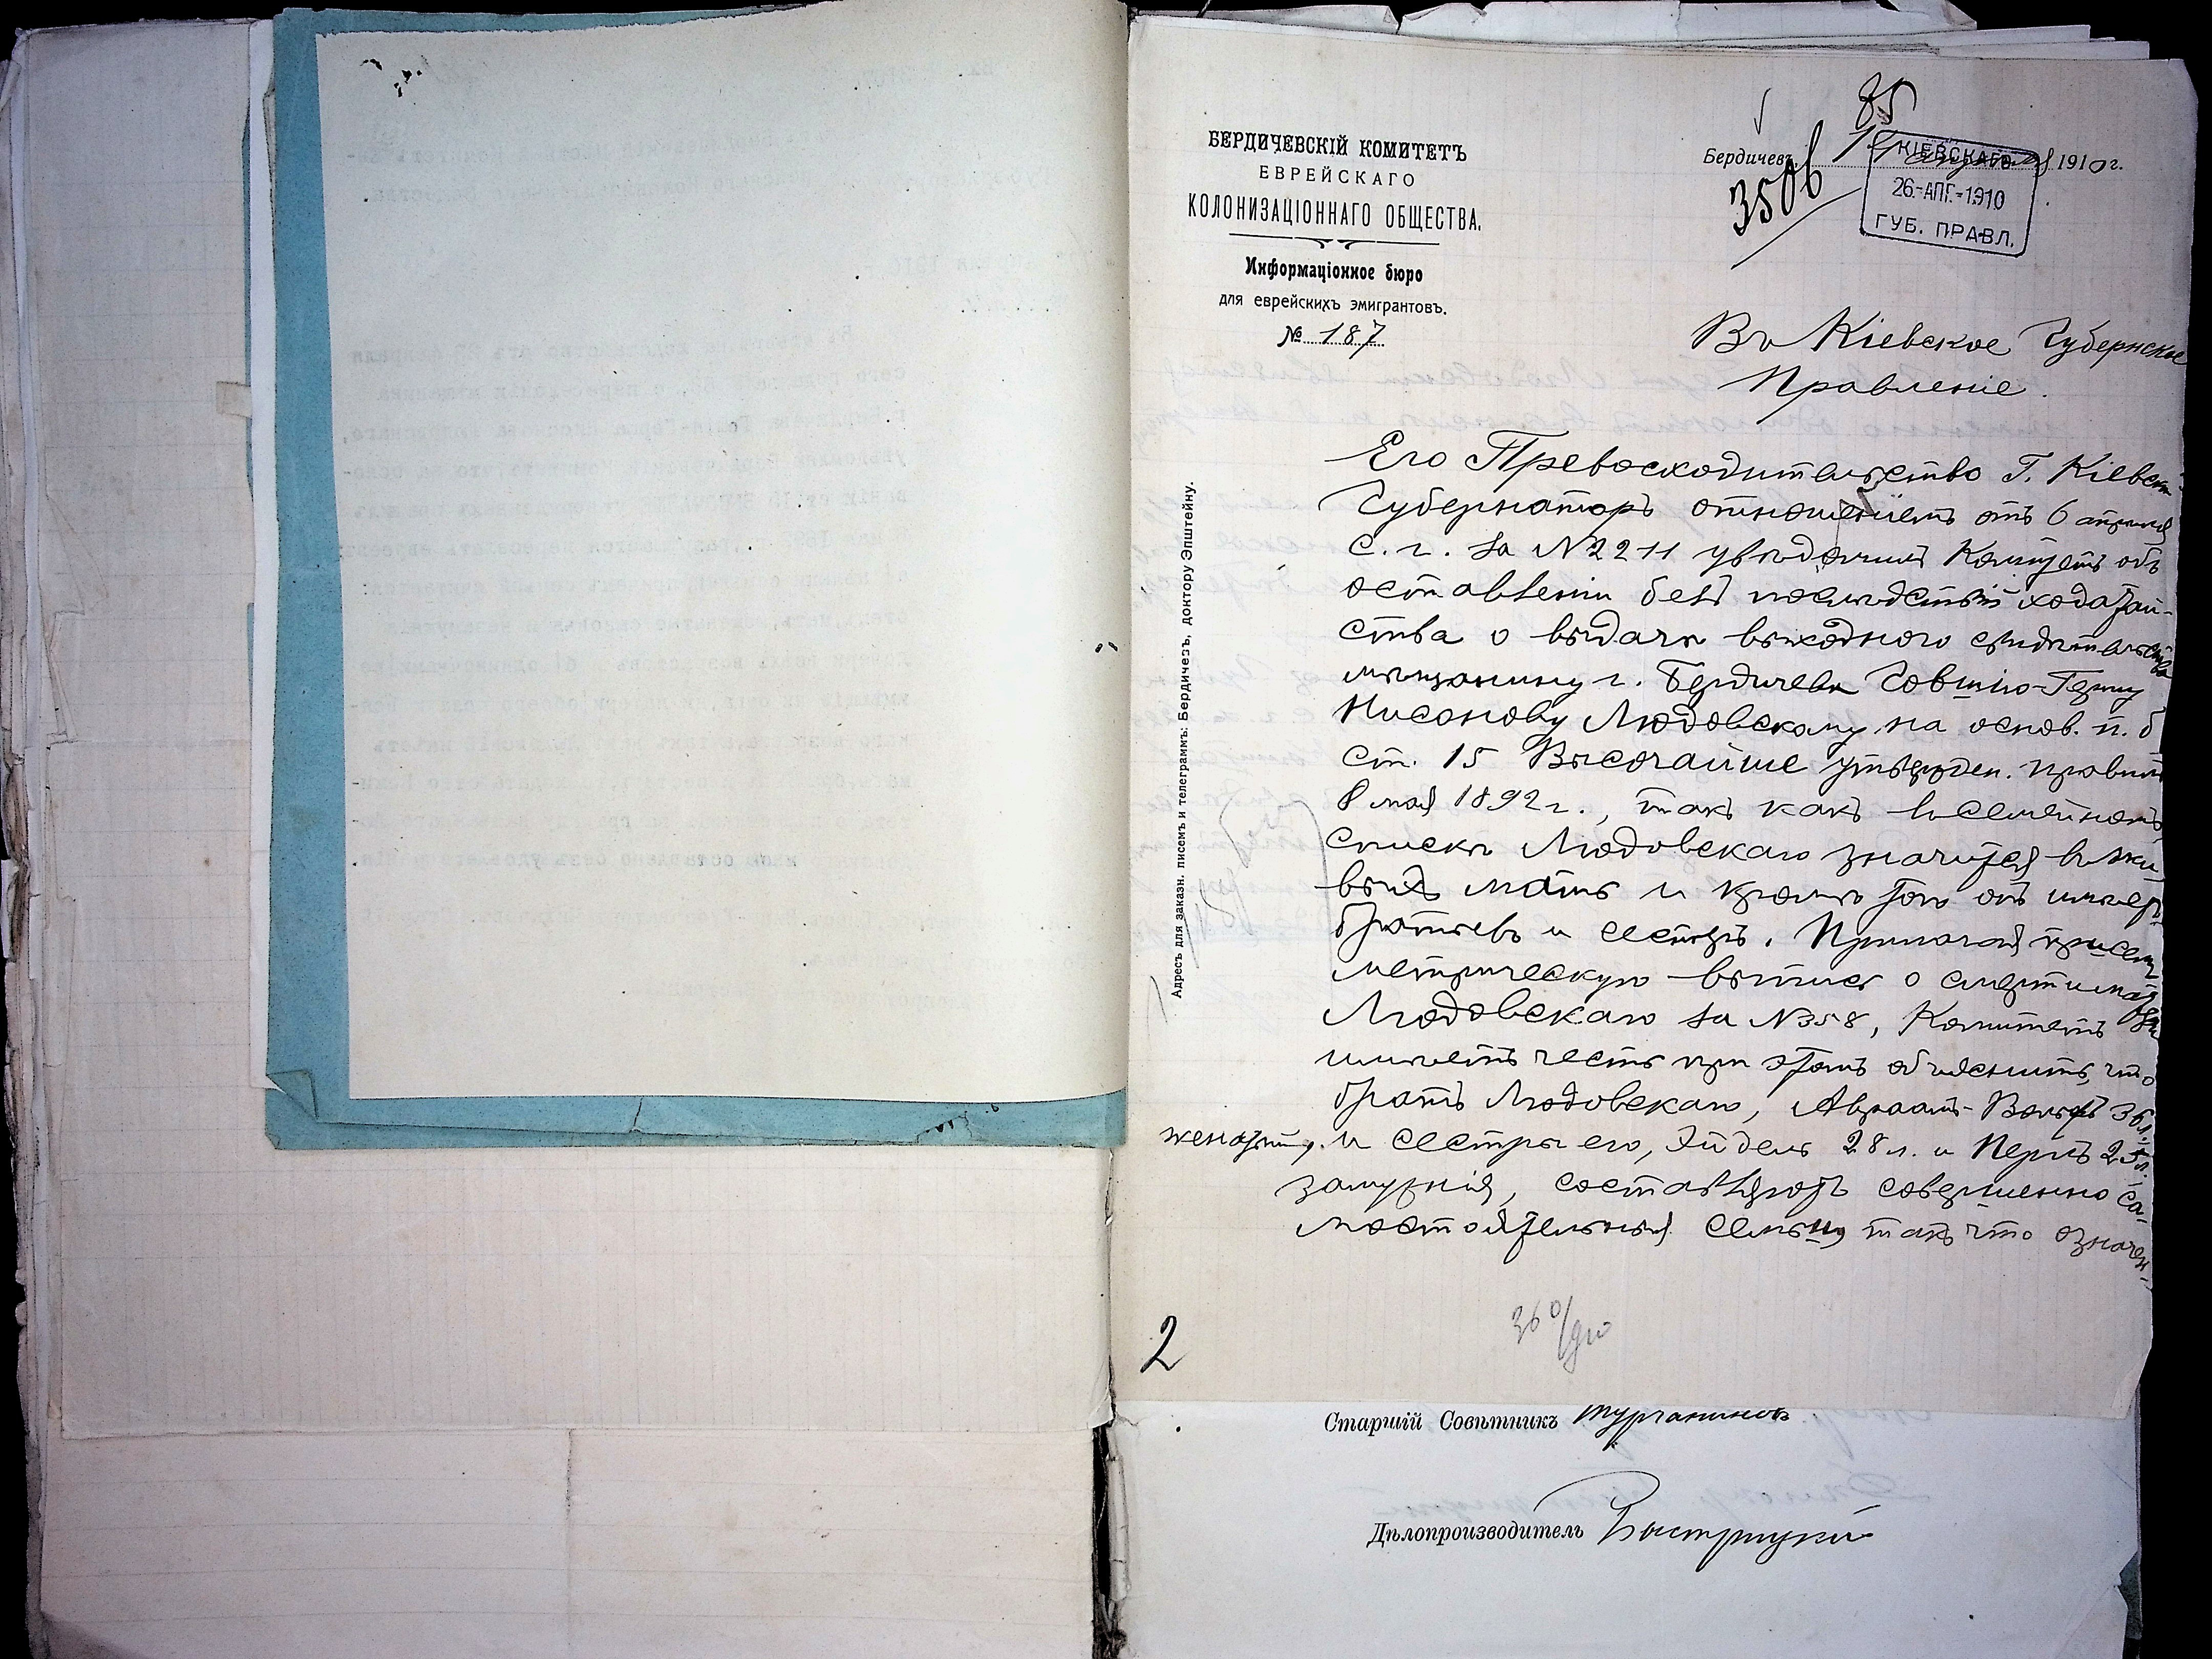 БЕРДИЧЕВСКІЙ КОМИТЕТЪ
ЕВРЕЙСКАГО
КОЛОНИЗАЦІОННАГО ОБЩЕСТВА.
Информаціонное бюро
для еврейскихъ эмигрантовъ.
№ 187
85
Бердичевъ, апрѣля 1910 г.
3506
КІЕВСКАГО
26.-АПГ.-1910
ГУБ. ПРАВЛ.
Въ Кіевское Губернское
Правленіе.
Адресъ для заказн. писемъ и телеграммъ: Бердичевъ, доктору Эпштейну.
Его Превосходительство Г. Кіевск.
Губернаторъ отношеніемъ отъ 6 апрѣля
с. г. за №2211 увѣдомилъ Комитетъ объ
оставленіи безъ послѣдствій ходатай-
ства о выдачѣ выходного свидѣтельства
мѣщанину г. Бердичева Говшію-Герцу
Нисонову Людовскому на основ. п. б
ст. 15 Высочайше утвержден. правилъ
8 мая 1892 г., такъ какъ въ семейномъ
спискѣ Людовскаго значится въ жи-
выхъ мать и кромѣ того онъ имѣетъ
братьевъ и сестеръ. Прилагая при семъ
метрическую выпись о смерти матери
Людовскаго за №358, Комитетъ
имѣетъ честь при этомъ объяснить, что
братъ Людовскаго, Авраамъ-Вольфъ 36 л.
женатый, и сестры его, Эйдель 28 л. и Перль 25 л.
замужнія, составляютъ совершенно са-
мостоятельныя семьи, такъ что означен-
2
36 0/
Старшій Совѣтникъ Турчаниновъ
Дѣлопроизводитель Быстрицкій